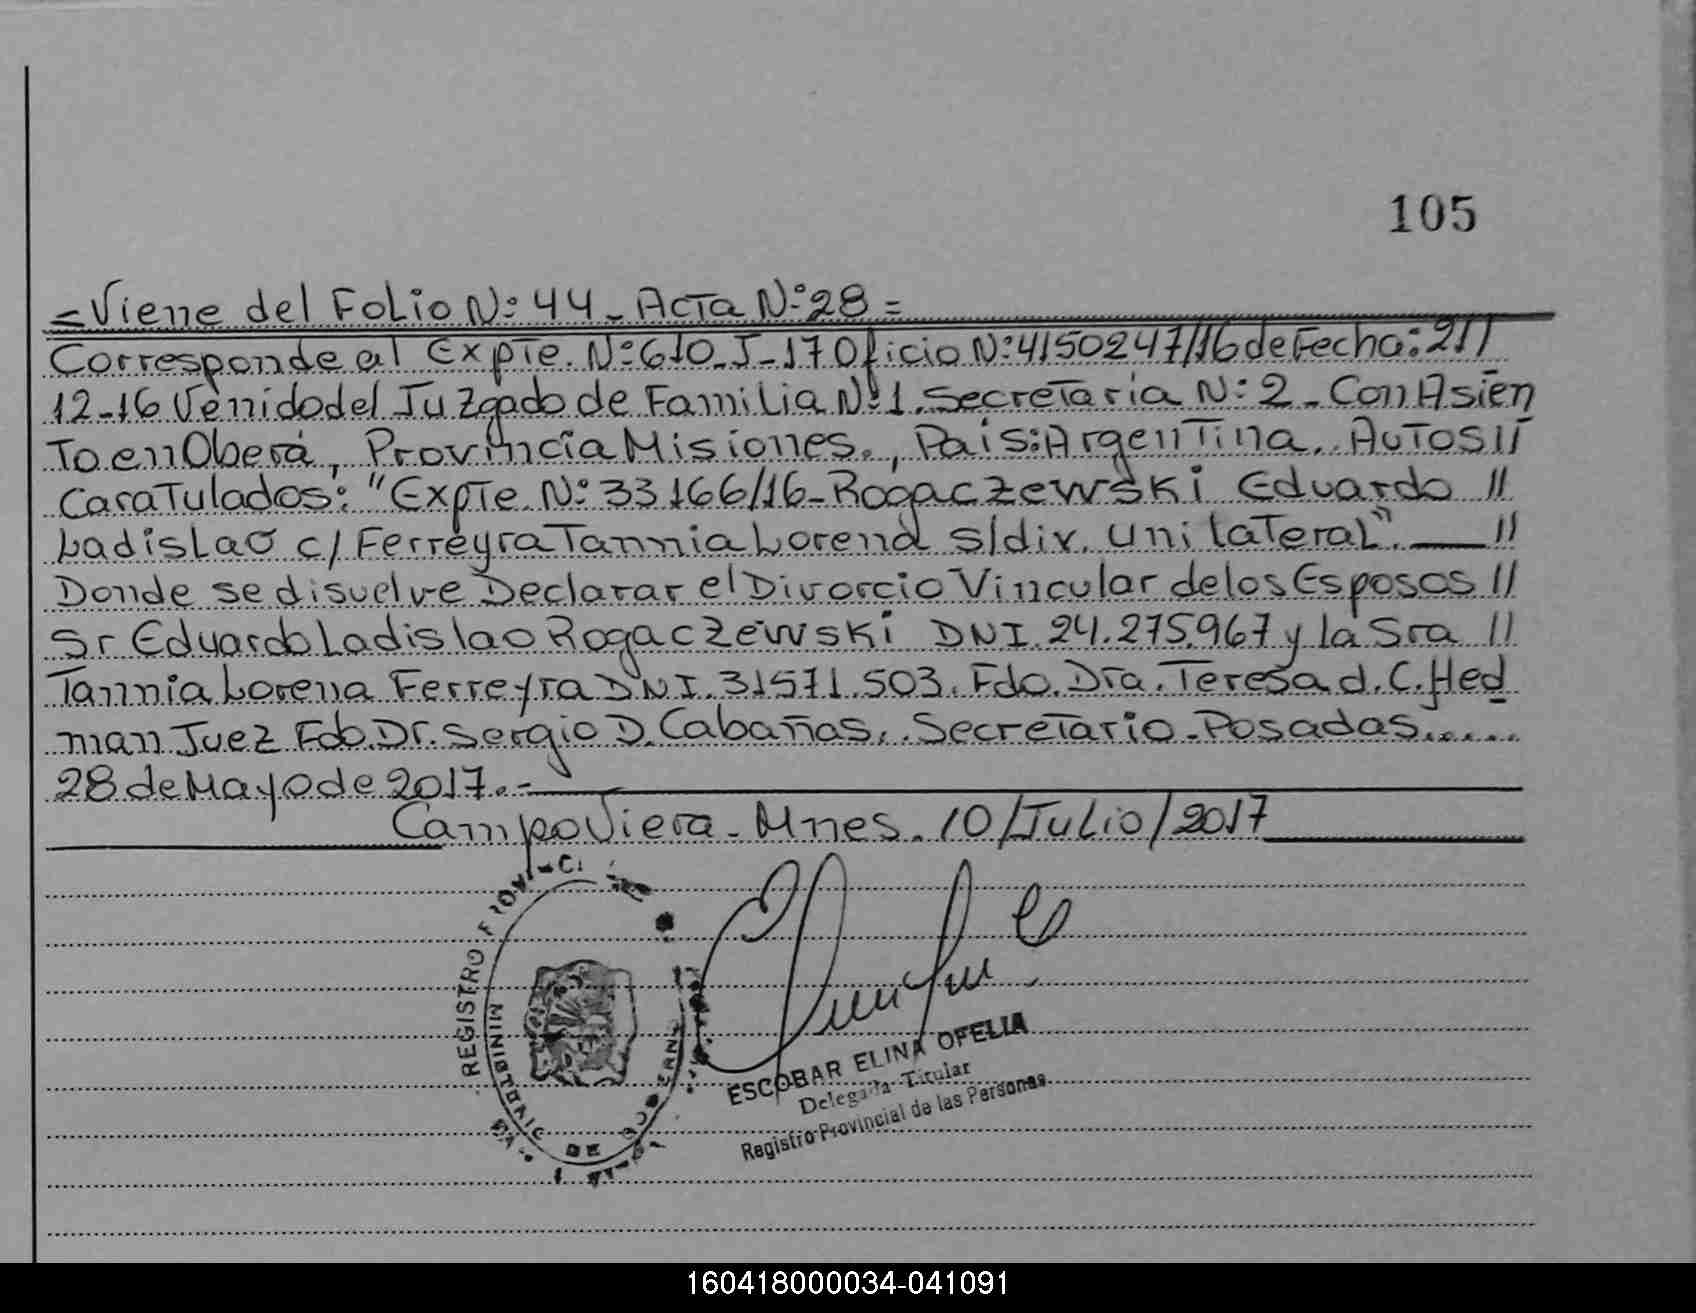 105
= Viene del Folio N: 44 - Acta N° 28 =
Corresponde al Expte. N° 610-J-17 Oficio N° 4150247/16 de Fecha: 21//
12-16 Venido del Juzgado de Familia N° 1. Secretaria N: 2 - Con Asien
To en Oberá, Provincia Misiones., Pais: Argentina. Autos //
Caratulados: "Expte. N° 33166/16 - Rogaczewski Eduardo //
Ladislao c/ Ferreyra Tannia Lorena s/div. unilateral". ___ //
Donde se disuelve Declarar el Divorcio Vincular de los Esposos //
Sr Eduardo Ladislao Rogaczewski DNI. 24.275.967 y la Sra //
Tannia Lorena Ferreyra DNI. 31571.503. Fdo. Dra. Teresa d. C. Hed
man Juez Fdo. Dr. Sergio D. Cabañas. Secretario - Posadas.....
28 de Mayo de 2017.-
Campo Viera - Mnes. 10/Julio/2017
REGISTRO
DE
ESCOBAR ELINA OFELIA
Delegada Titular
Registro Provincial de las Personas
160418000034-041091